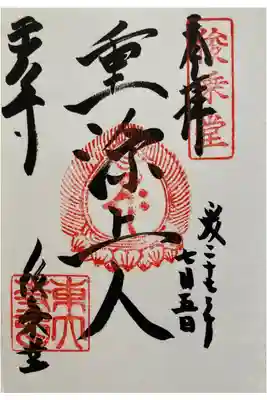 奉拝
俊乗堂
平成二十七年
七月五日
重源上人
東大寺
俊乗堂
東大